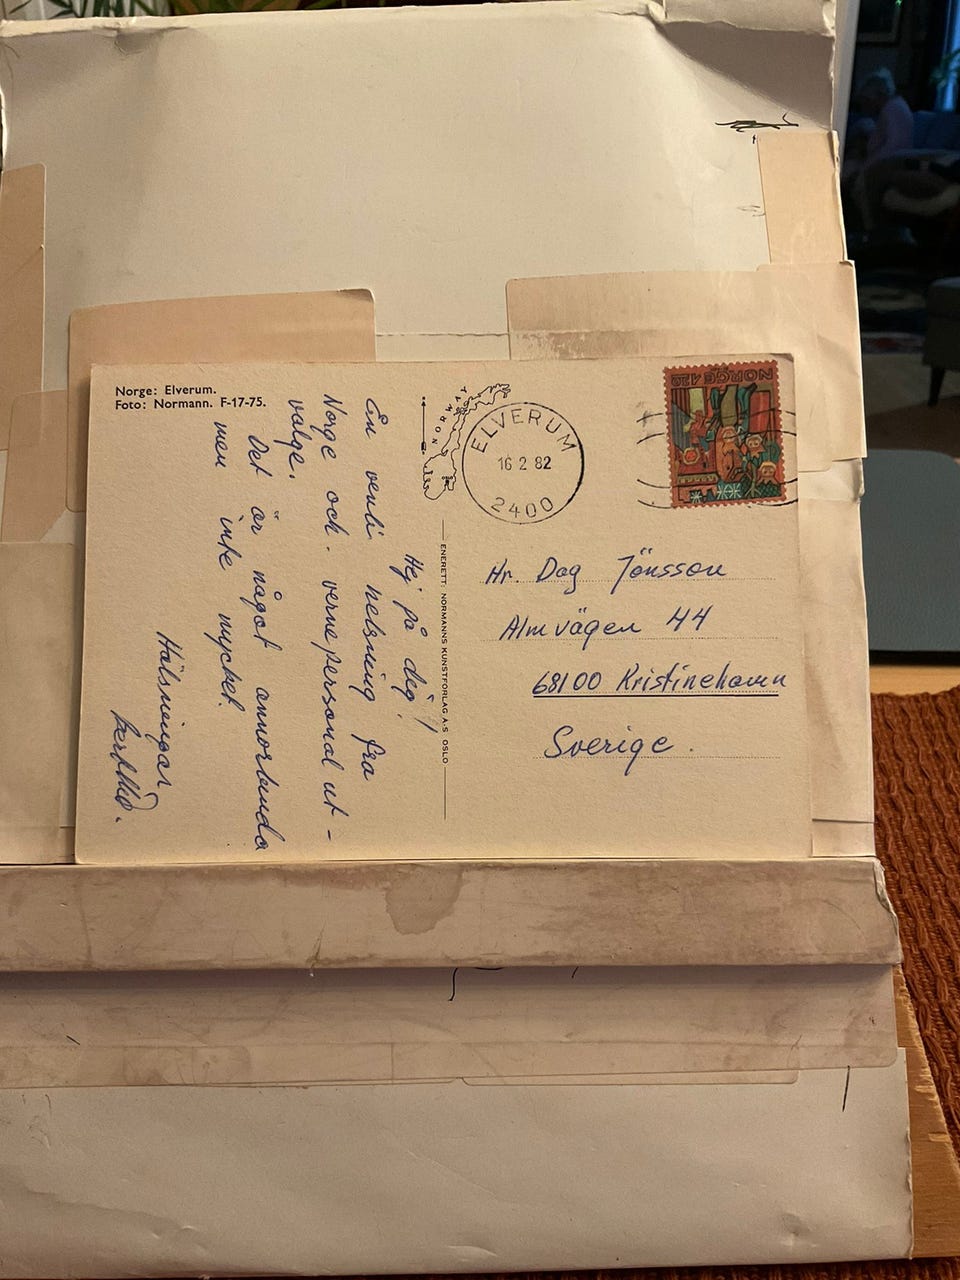 Norge: Elverum.
Foto: Normann. F-17-75.
NORWAY
ELVERUM
16 2 82
2400
NORGE 120
ENERETT: NORMANNS KUNSTFORLAG A-S OSLO
Hej på dig!
En venli helsning fra
Norge och. vernepersonal ut-
valge.
Det är något annorlunda
men inte mycket.
Hälsningar
Hr. Dag Jönsson
Almvägen 44
68100 Kristinehamn
Sverige.